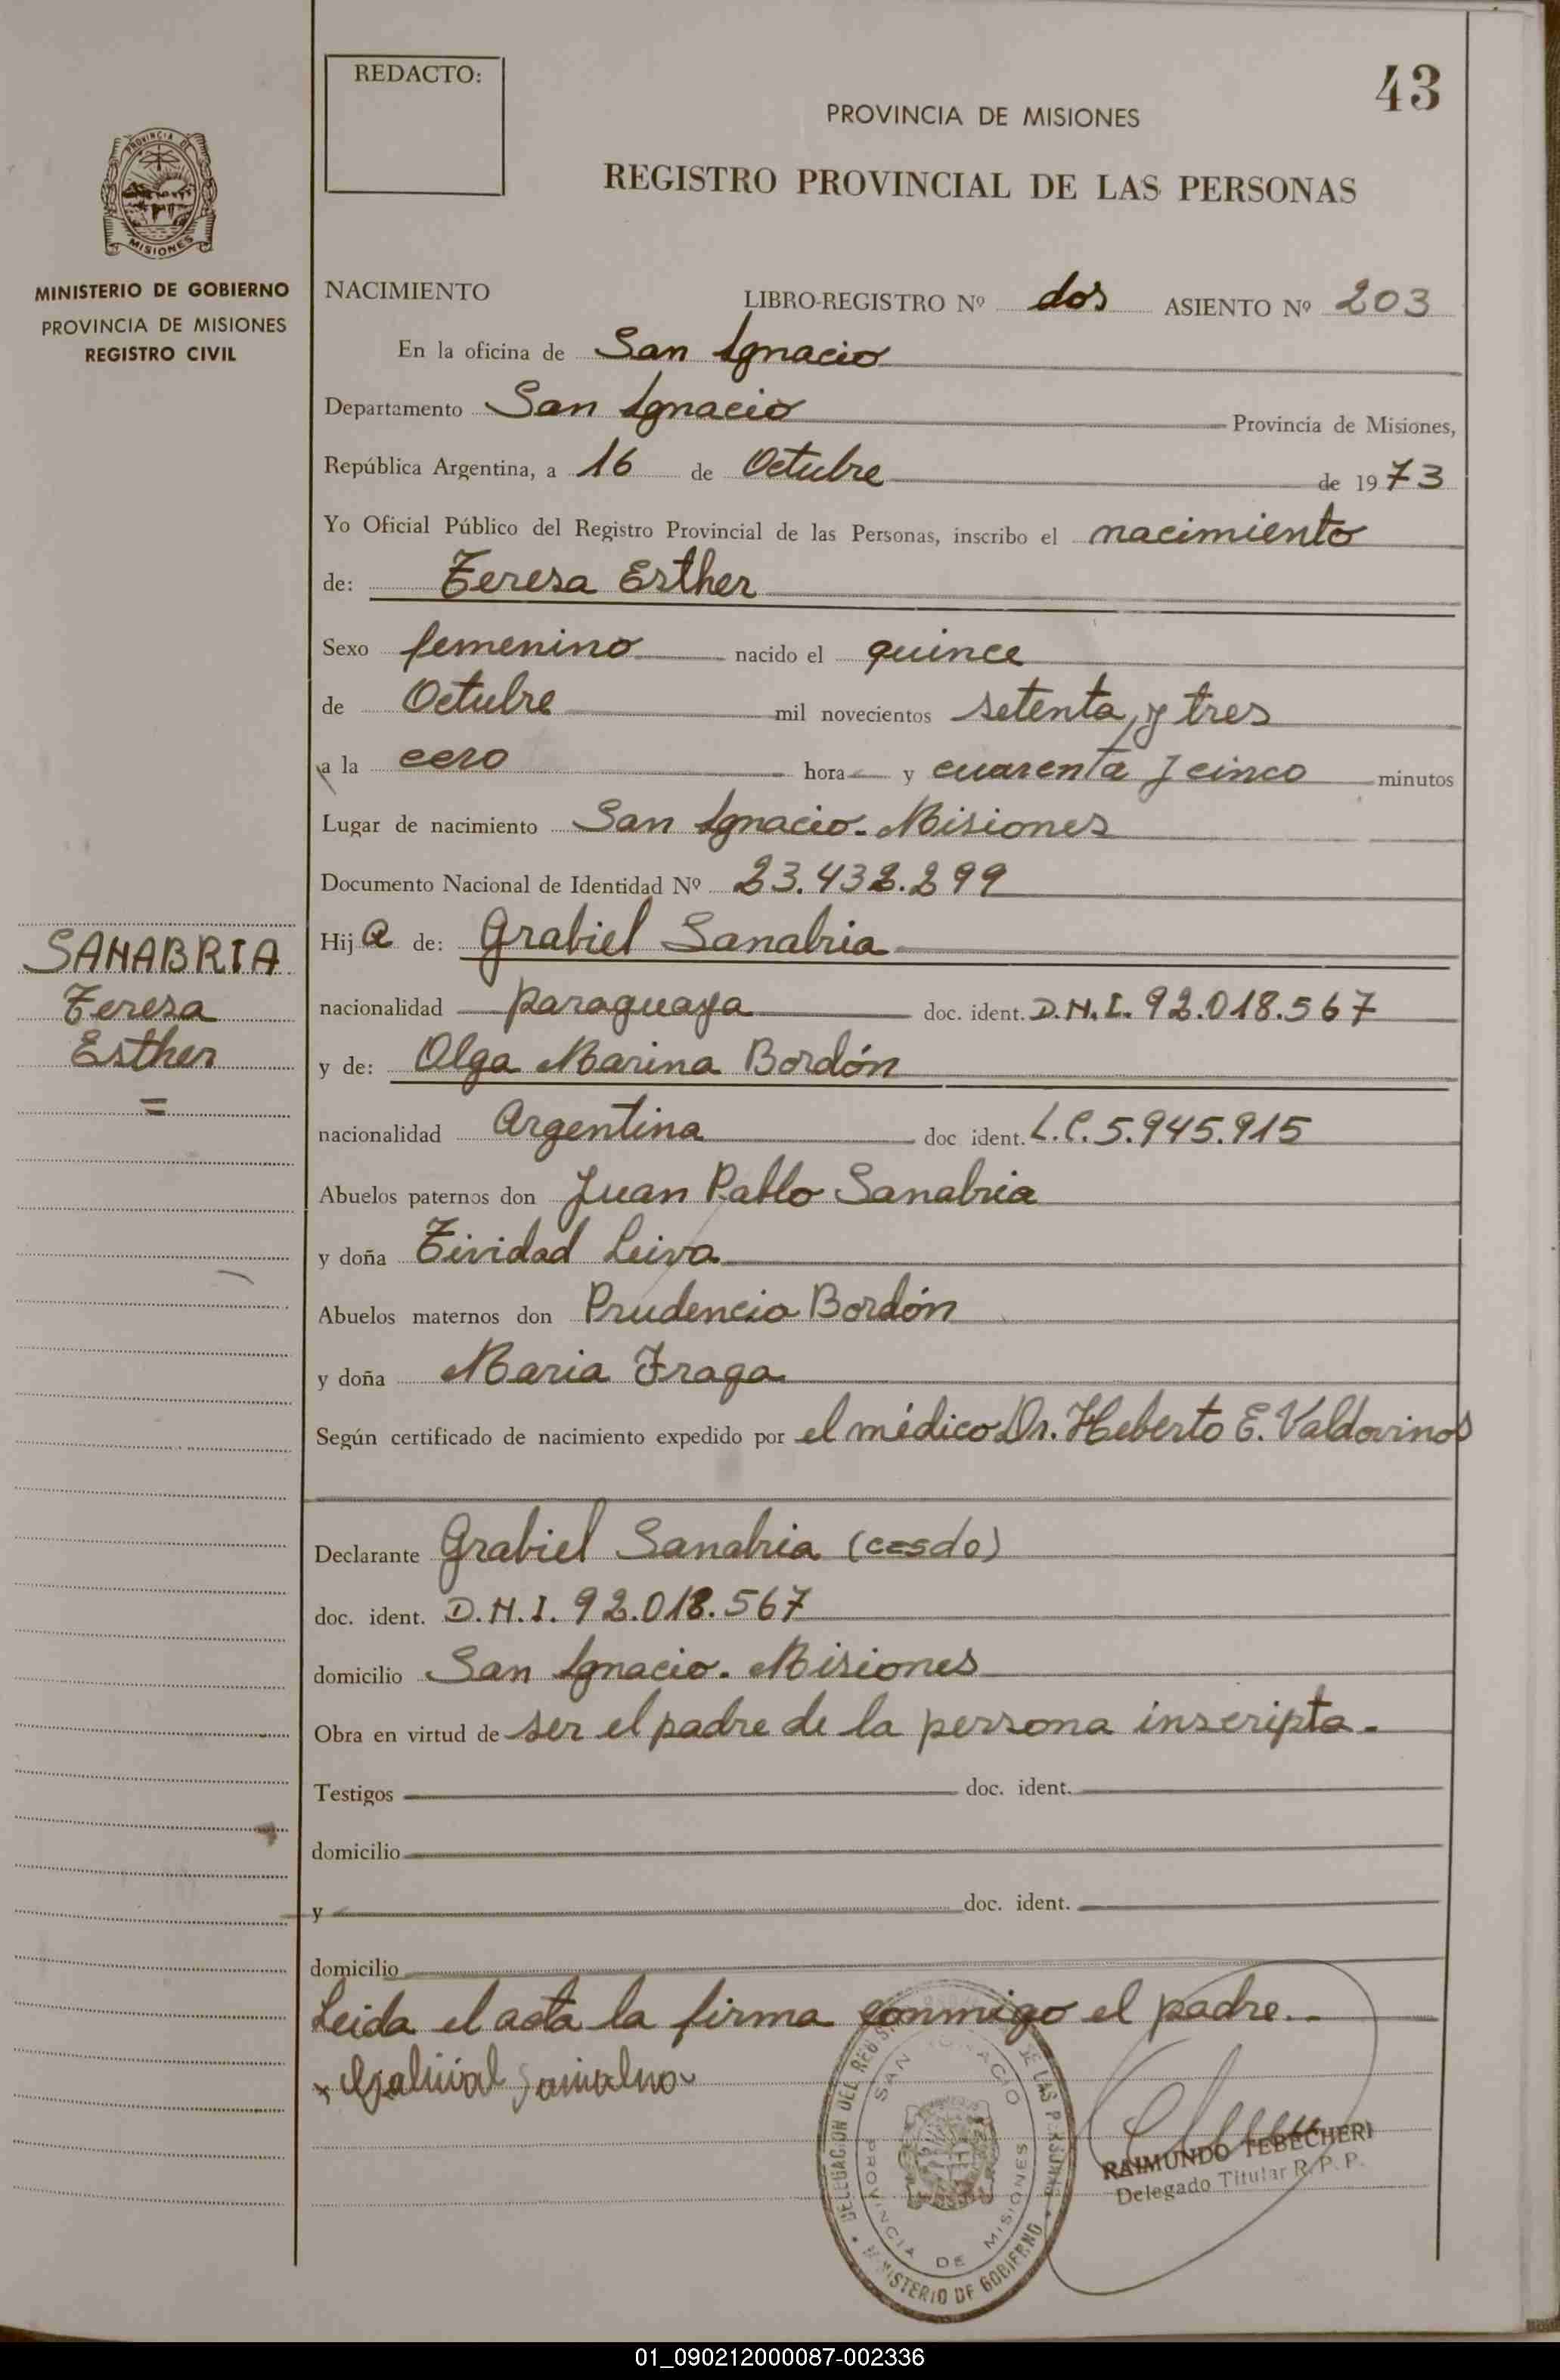 REDACTO:
43
PROVINCIA DE MISIONES
REGISTRO PROVINCIAL DE LAS PERSONAS
PROVINCIA DE
MISIONES
MINISTERIO DE GOBIERNO
PROVINCIA DE MISIONES
REGISTRO CIVIL
NACIMIENTO LIBRO-REGISTRO Nº dos ASIENTO Nº 203
En la oficina de San Ignacio
Departamento San Ignacio Provincia de Misiones,
República Argentina, a 16 de Octubre de 1973
Yo Oficial Público del Registro Provincial de las Personas, inscribo el nacimiento
de: Teresa Esther
Sexo femenino nacido el quince
de Octubre mil novecientos setenta y tres
a la cero hora y cuarenta y cinco minutos
Lugar de nacimiento San Ignacio. Misiones
Documento Nacional de Identidad Nº 23.432.299
Hija de: Grabiel Sanabria
nacionalidad paraguaya doc. ident. D.N.I. 92.018.567
y de: Olga Marina Bordón
nacionalidad Argentina doc ident. L.C. 5.945.915
Abuelos paternos don Juan Pablo Sanabria
y doña Tividad Leiva
Abuelos maternos don Prudencio Bordón
y doña Maria Fraga
Según certificado de nacimiento expedido por el médico Dr. Heberto E. Valdovinos
Declarante Grabiel Sanabria (casdo)
doc. ident. D.N.I. 92.018.567
domicilio San Ignacio. Misiones
Obra en virtud de ser el padre de la persona inscripta.
Testigos doc. ident.
domicilio
y doc. ident.
domicilio
Leida el acta la firma conmigo el padre.
SANABRIA
Teresa
Esther
=
DELEGACION DEL REG DE LAS PERSONAS
SAN IGNACIO
PROVINCIA DE MISIONES
MINISTERIO DE GOBIERNO
RAIMUNDO TEBECHERI
Delegado Titular R. P. P.
01_090212000087-002336